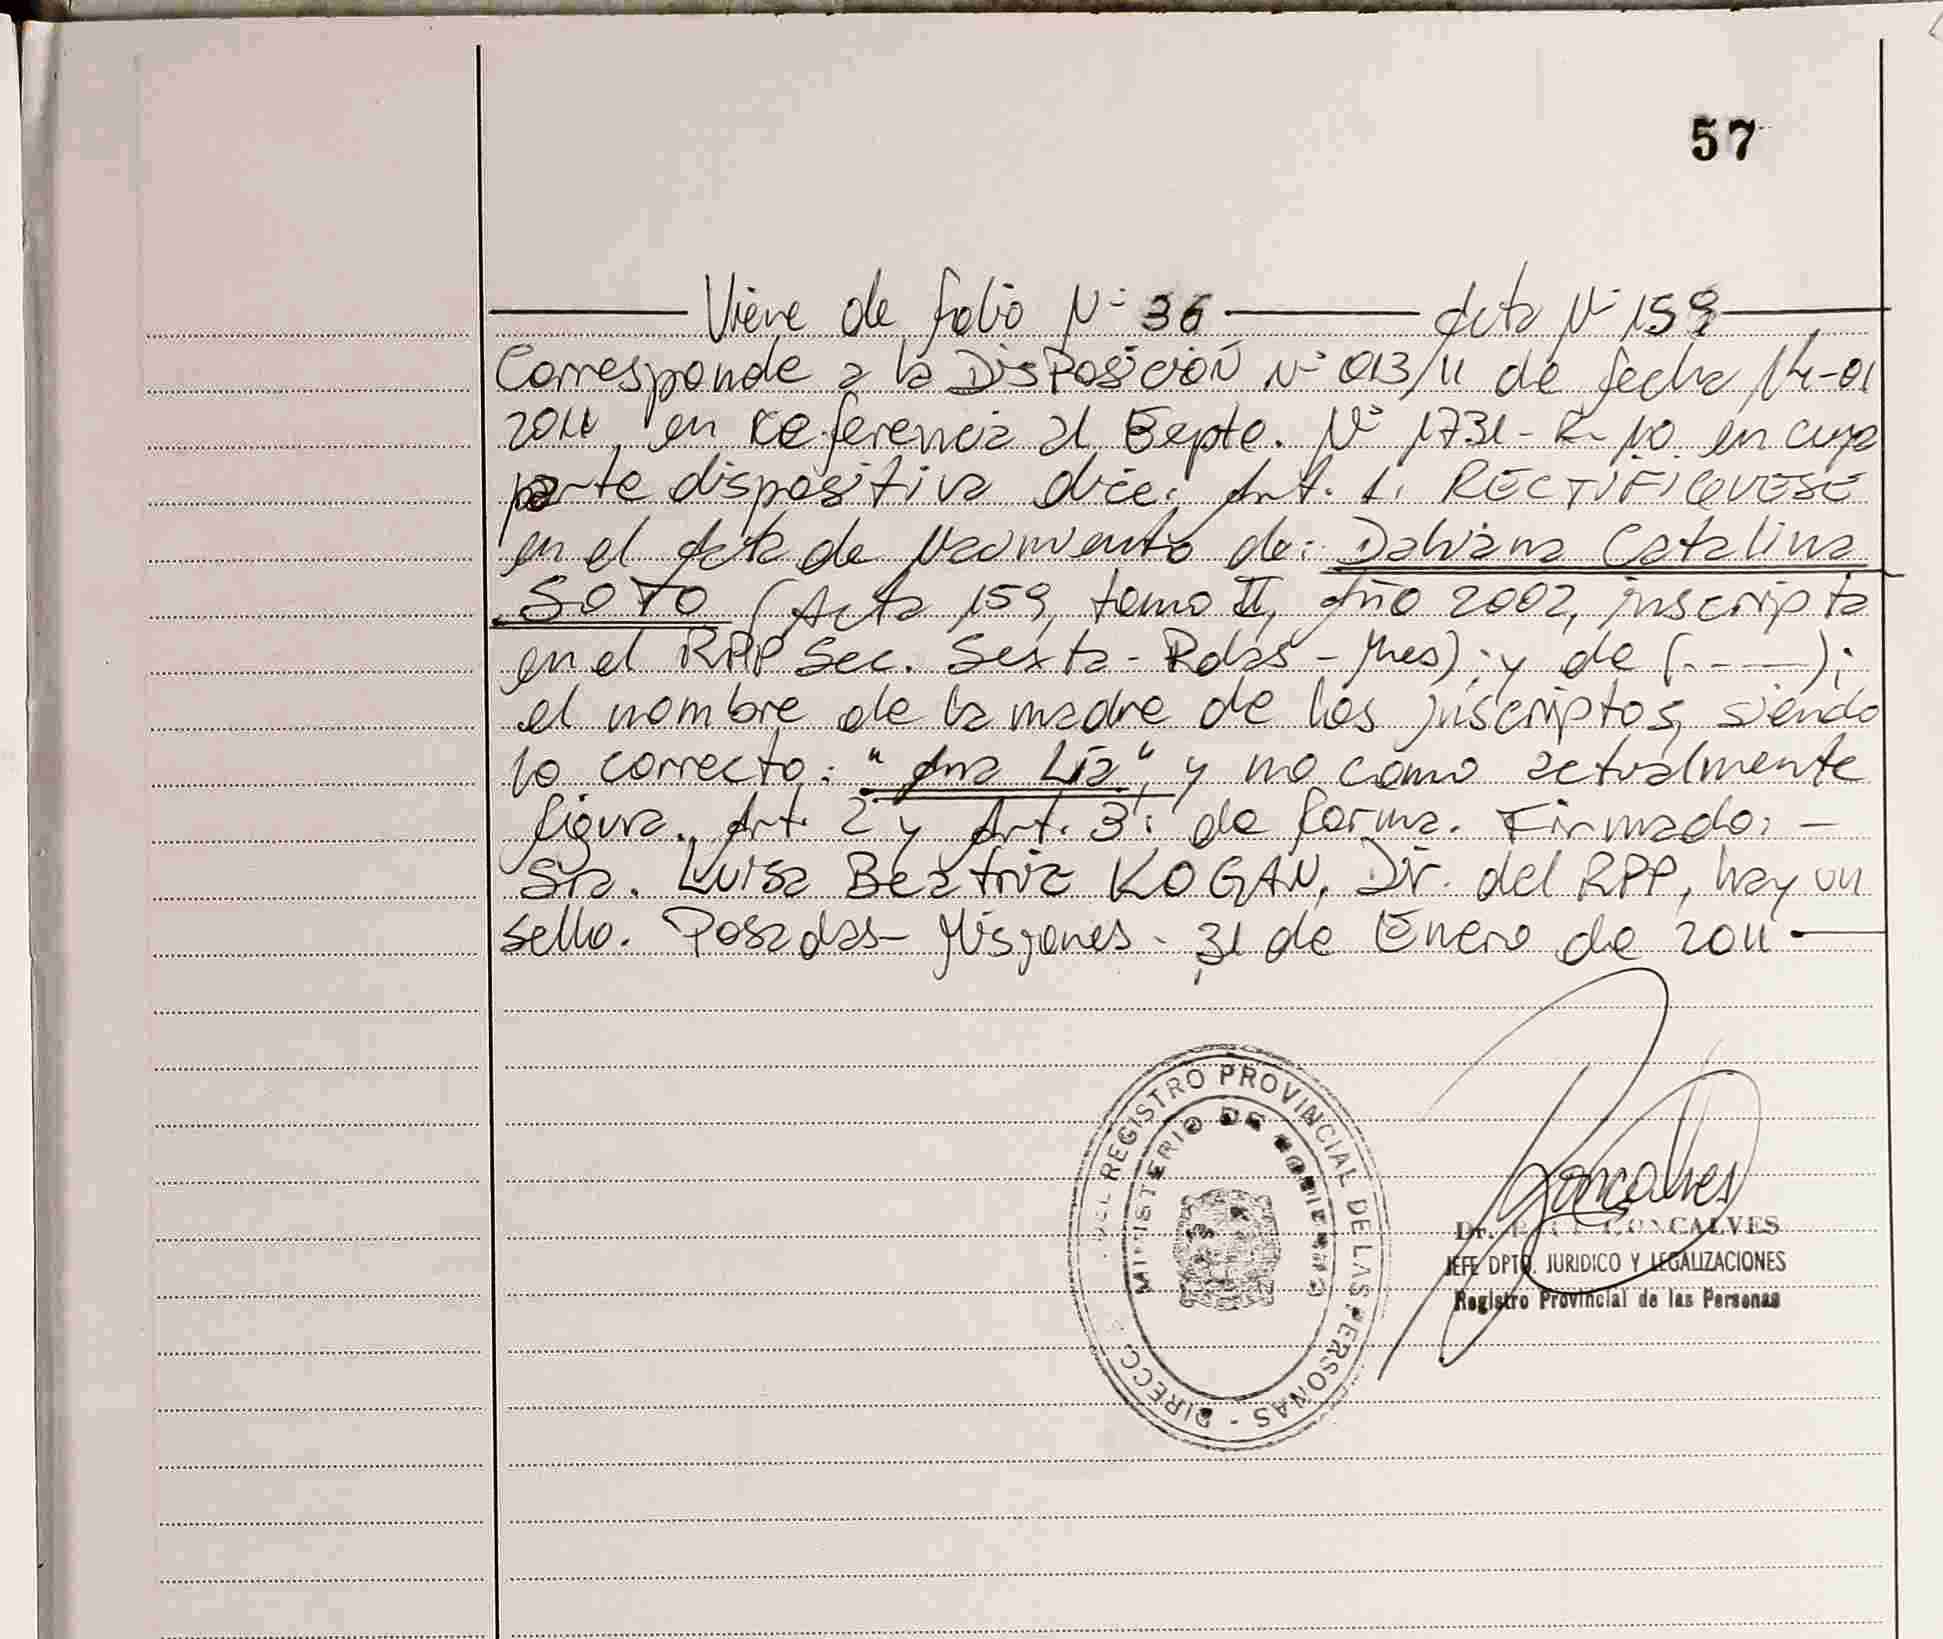 57
Viene de folio Nº 36 Acta Nº 159
Corresponde a la DISPOSICIÓN Nº 013/11 de fecha 14-01
2011, en referencia al Expte. Nº 1731-R-10 en cuya
parte dispositiva dice: Art. 1: RECTIFIQUESE
en el Acta de Nacimiento de: Dahiana Catalina
SOTO (Acta 159, tomo II, Año 2002, inscripta
en el RPP Sec. Sexta-Pdas-Mnes); y de (.---);
el nombre de la madre de los inscriptos, siendo
lo correcto: "Ana Lía", y no como actualmente
figura. Art. 2 y Art. 3: de forma. Firmado: -
Sra. Luisa Beatriz KOGAN, Dir. del RPP, hay un
sello. Posadas-Misiones- 31 de Enero de 2011
DIRECC DEL REGISTRO PROVINCIAL DE LAS PERSONAS -
MINISTERIO DE GOBIERNO
Goncalves
Dr. GONCALVES
JEFE DPTO. JURIDICO Y LEGALIZACIONES
Registro Provincial de las Personas